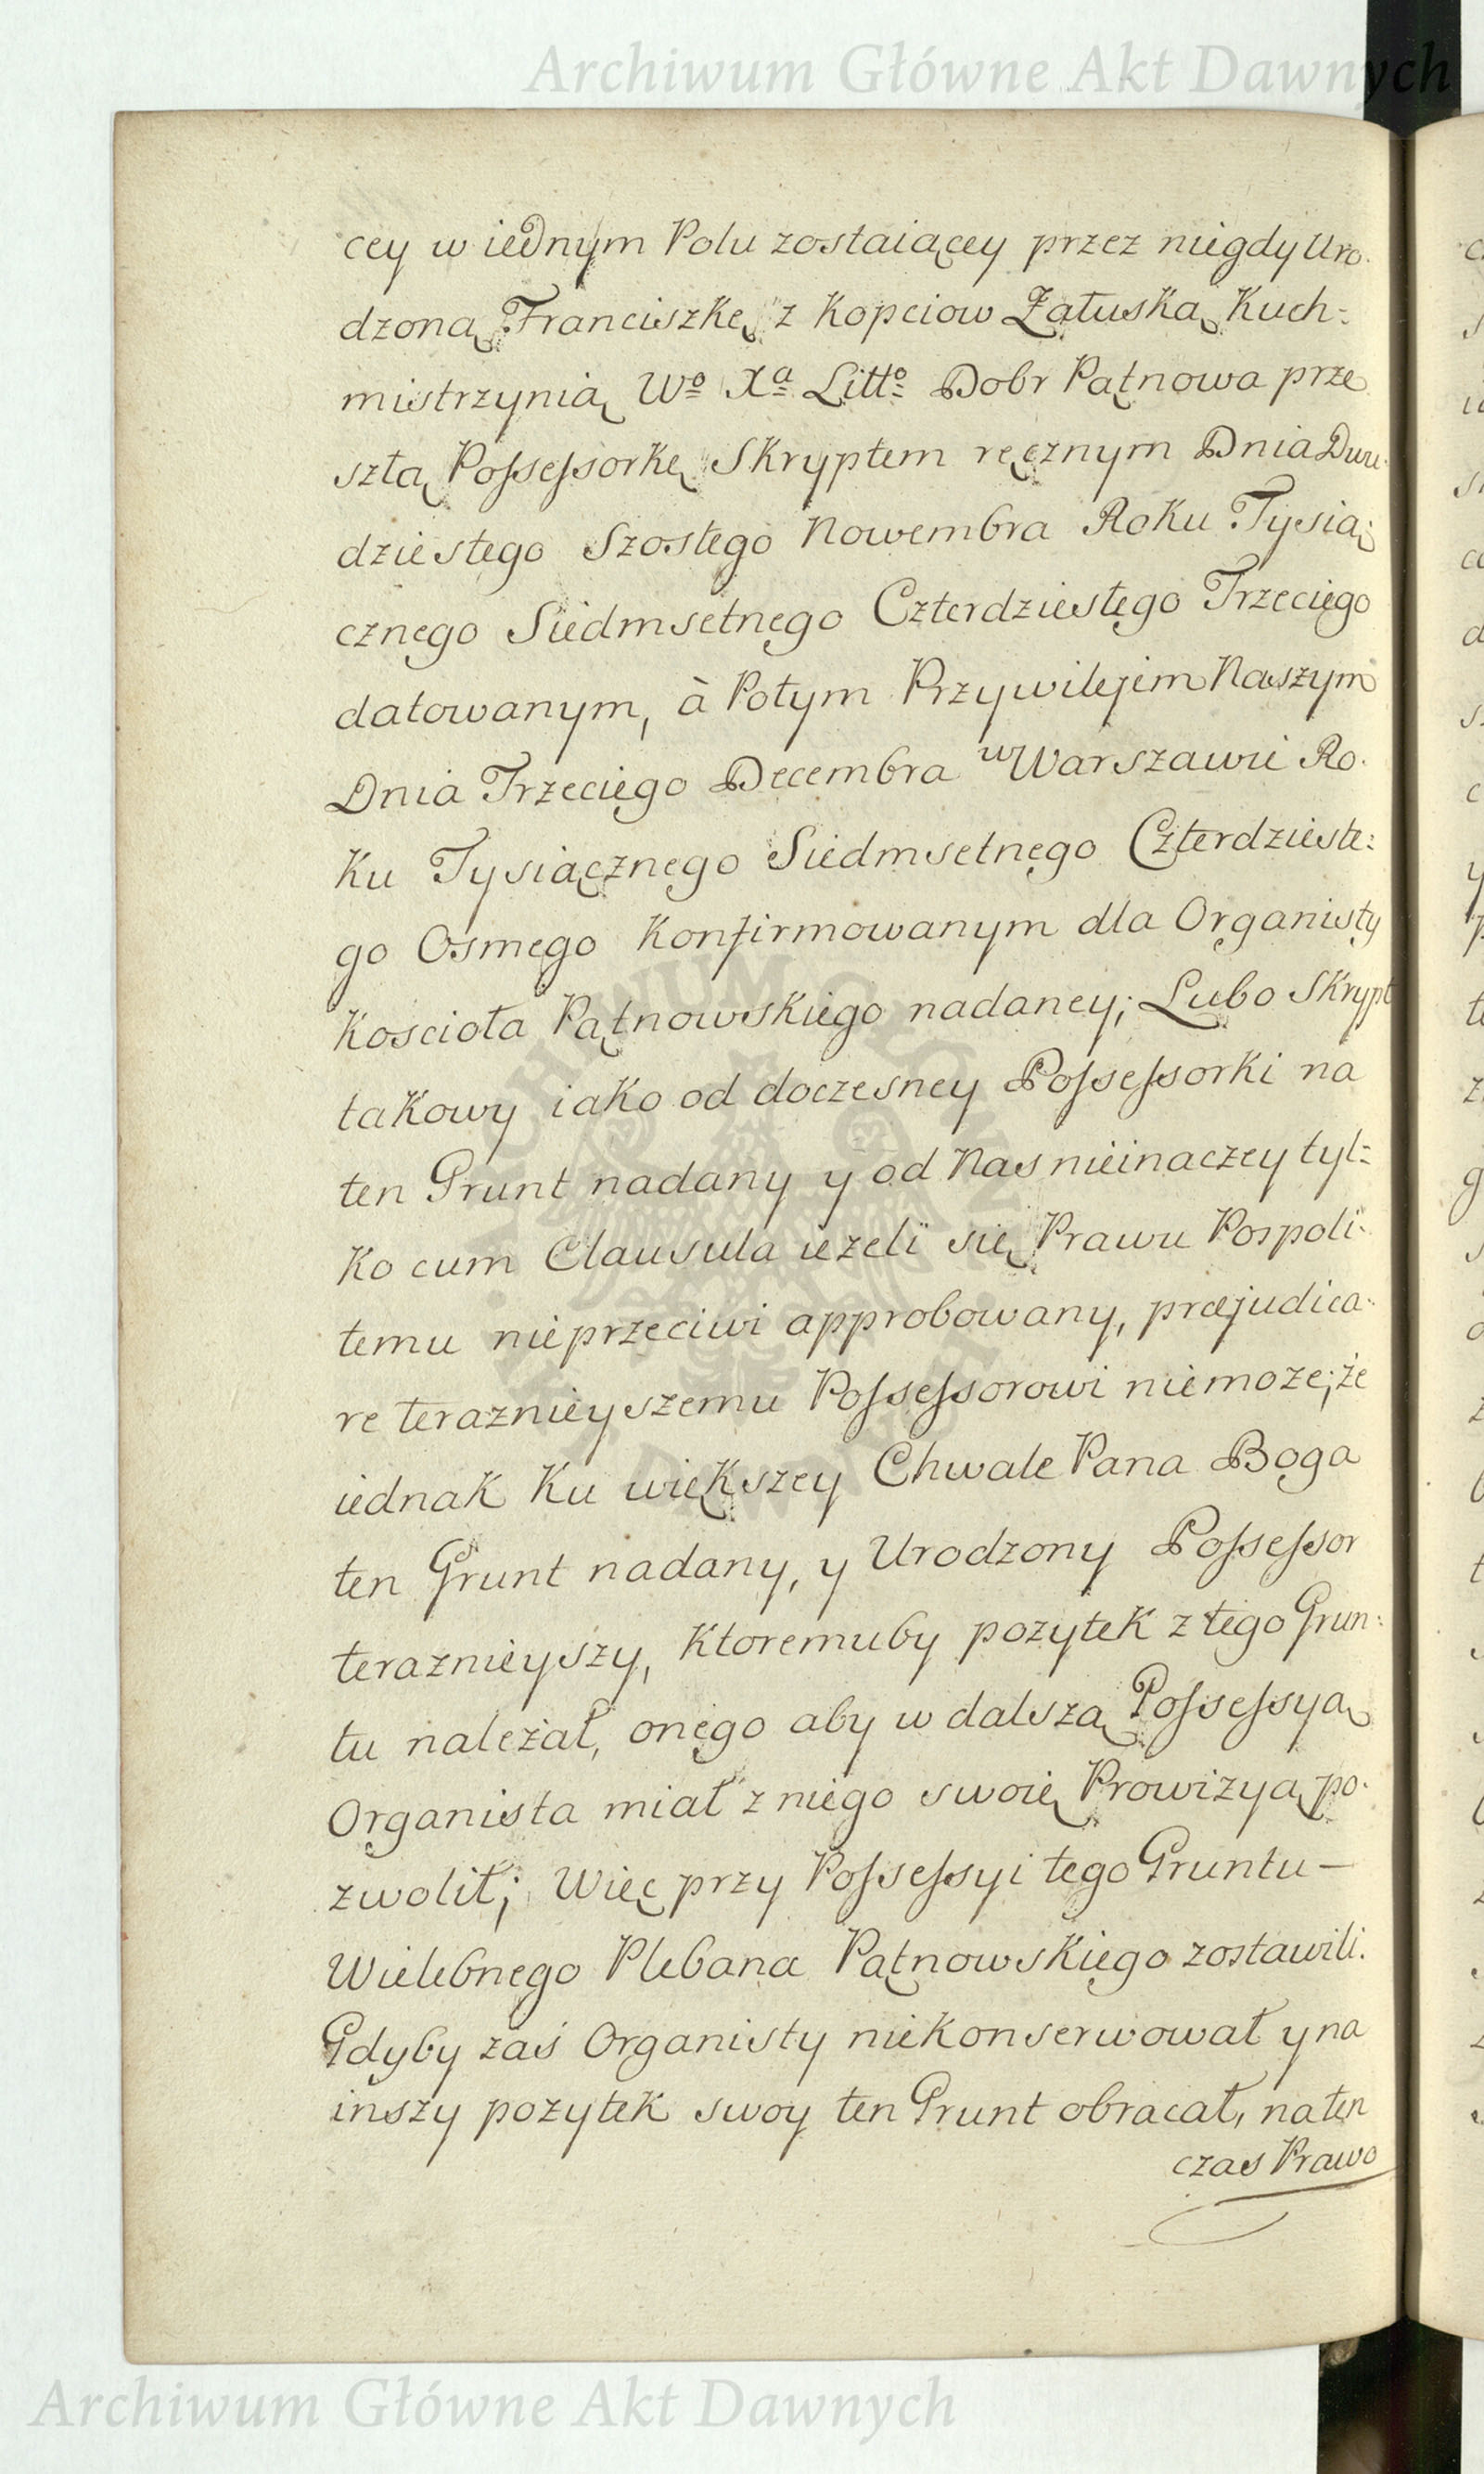 Archiwum Główne Akt Dawnych
cey w iednym Polu zostaiącey przez niegdy Uro-
dzoną Franciszkę z Kopciow Załuską Kuch=
mistrzynią Wº Xª Littº Dobr Pątnowa prze
szłą Possessorkę Skryptem ręcznym Dnia Dwu-
dziestego Szostego Nowembra Roku Tysią=
cznego Siedmsetnego Czterdziestego Trzeciego
datowanym, à Potym Przywilejem Naszym
Dnia Trzeciego Decembra w Warszawie Ro-
ku Tysiącznego Siedmsetnego Czterdzieste=
go Osmego Konfirmowanym dla Organisty
Koscioła Pątnowskiego nadaney; Lubo Skrypt
takowy iako od doczesney Possessorki na
ten Grunt nadany y od Nas nieinaczey tyl=
ko cum Clausula ieżeli się Prawu Pospoli-
temu nieprzeciwi approbowany, præjudica-
re teraznieyszemu Possessorowi niemoże; że
iednak Ku większey Chwale Pana Boga
ten Grunt nadany, y Urodzony Possessor
teraznieyszy, Ktoremuby pozytek z tego Grun=
tu należał, onego aby w dalszą Possessyą
Organista miał z niego swoię Prowizyą po-
zwolił; Więc przy Possessyi tego Gruntu —
Wielebnego Plebana Pątnowskiego zostawili.
Gdyby zaś Organisty niekonserwował y na
inszy pozytek swoy ten Grunt obracał, na ten
czas Prawo
ARCHIWUM GŁÓWNE · AKT DAWNYCH ·
Archiwum Główne Akt Dawnych